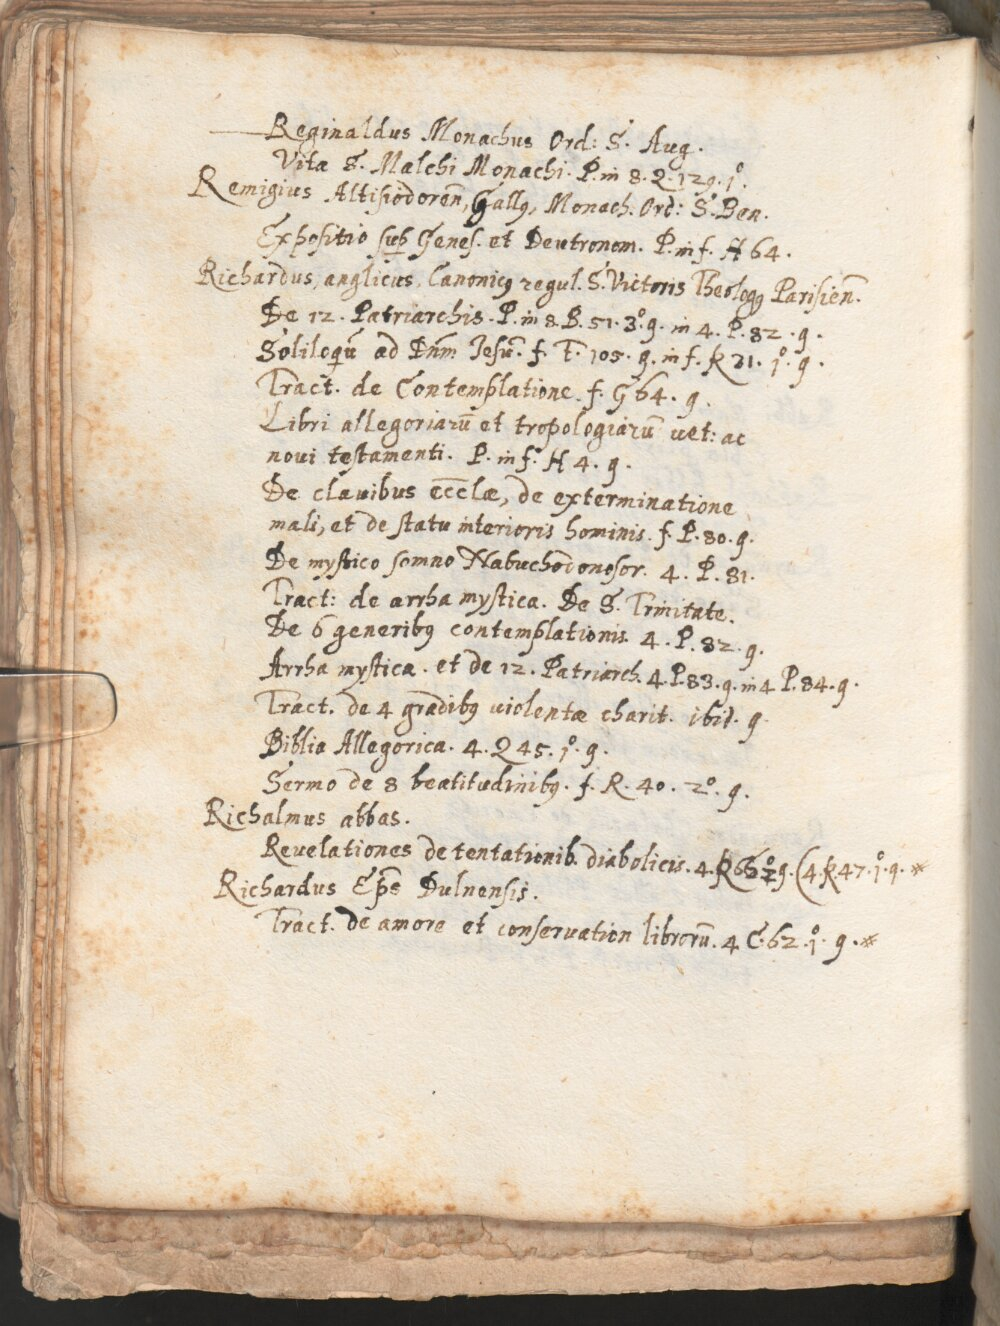 Reginaldus Monachus Ord: S. Aug.
Vita S. Malchi Monachi. P. in 8. Q. 129. 1º.
Remigius Altisiodoreñ, Gallꝯ, Monach. Ord: S. Ben.
Expositio sup Genes. et Deutronom. P. in f. H 64.
Richardus, anglicus, Canonicꝯ regul. S. Victoris Theologꝯ Parisieñ.
De 12. Patriarchis. P. in 8. B. 51. 3º. g. in 4. P. 82. g.
Soliloqū ad Dñm Jesū. f. T. 105. g. in f. R 21. 1º. g.
Tract. de Contemplatione. f. G 64. g.
Libri allegoriarū et tropologiarū uet: ac
noui testamenti. P. in f. H 4. g.
De clauibus eccle̅æ, de exterminatione
mali, et de statu interioris hominis. f. P. 80. g.
De mystico somno Nabuchodonosor. 4. P. 81.
Tract: de arrha mystica. De S. Trinitate.
De 6 generibꝯ contemplationis. 4. P. 82. g.
Arrha mystica. et de 12. Patriarch. 4. P. 83. g. in 4 P. 84. g.
Tract. de 4 gradibꝯ uiolentæ charit. ibid. g.
Biblia Allegorica. 4. Q 45. 1º. g.
Sermo de 8 beatitudinibꝯ. f. R. 40. 2º. g.
Richalmus abbas.
Reuelationes de tentationib. diabolicis. 4. R g. (4. R 47. 1º. g. *
Richardus Ep̅s Dulnensis.
Tract. de amore et conseruation librorū. 4 C. 62. 1º. g. *